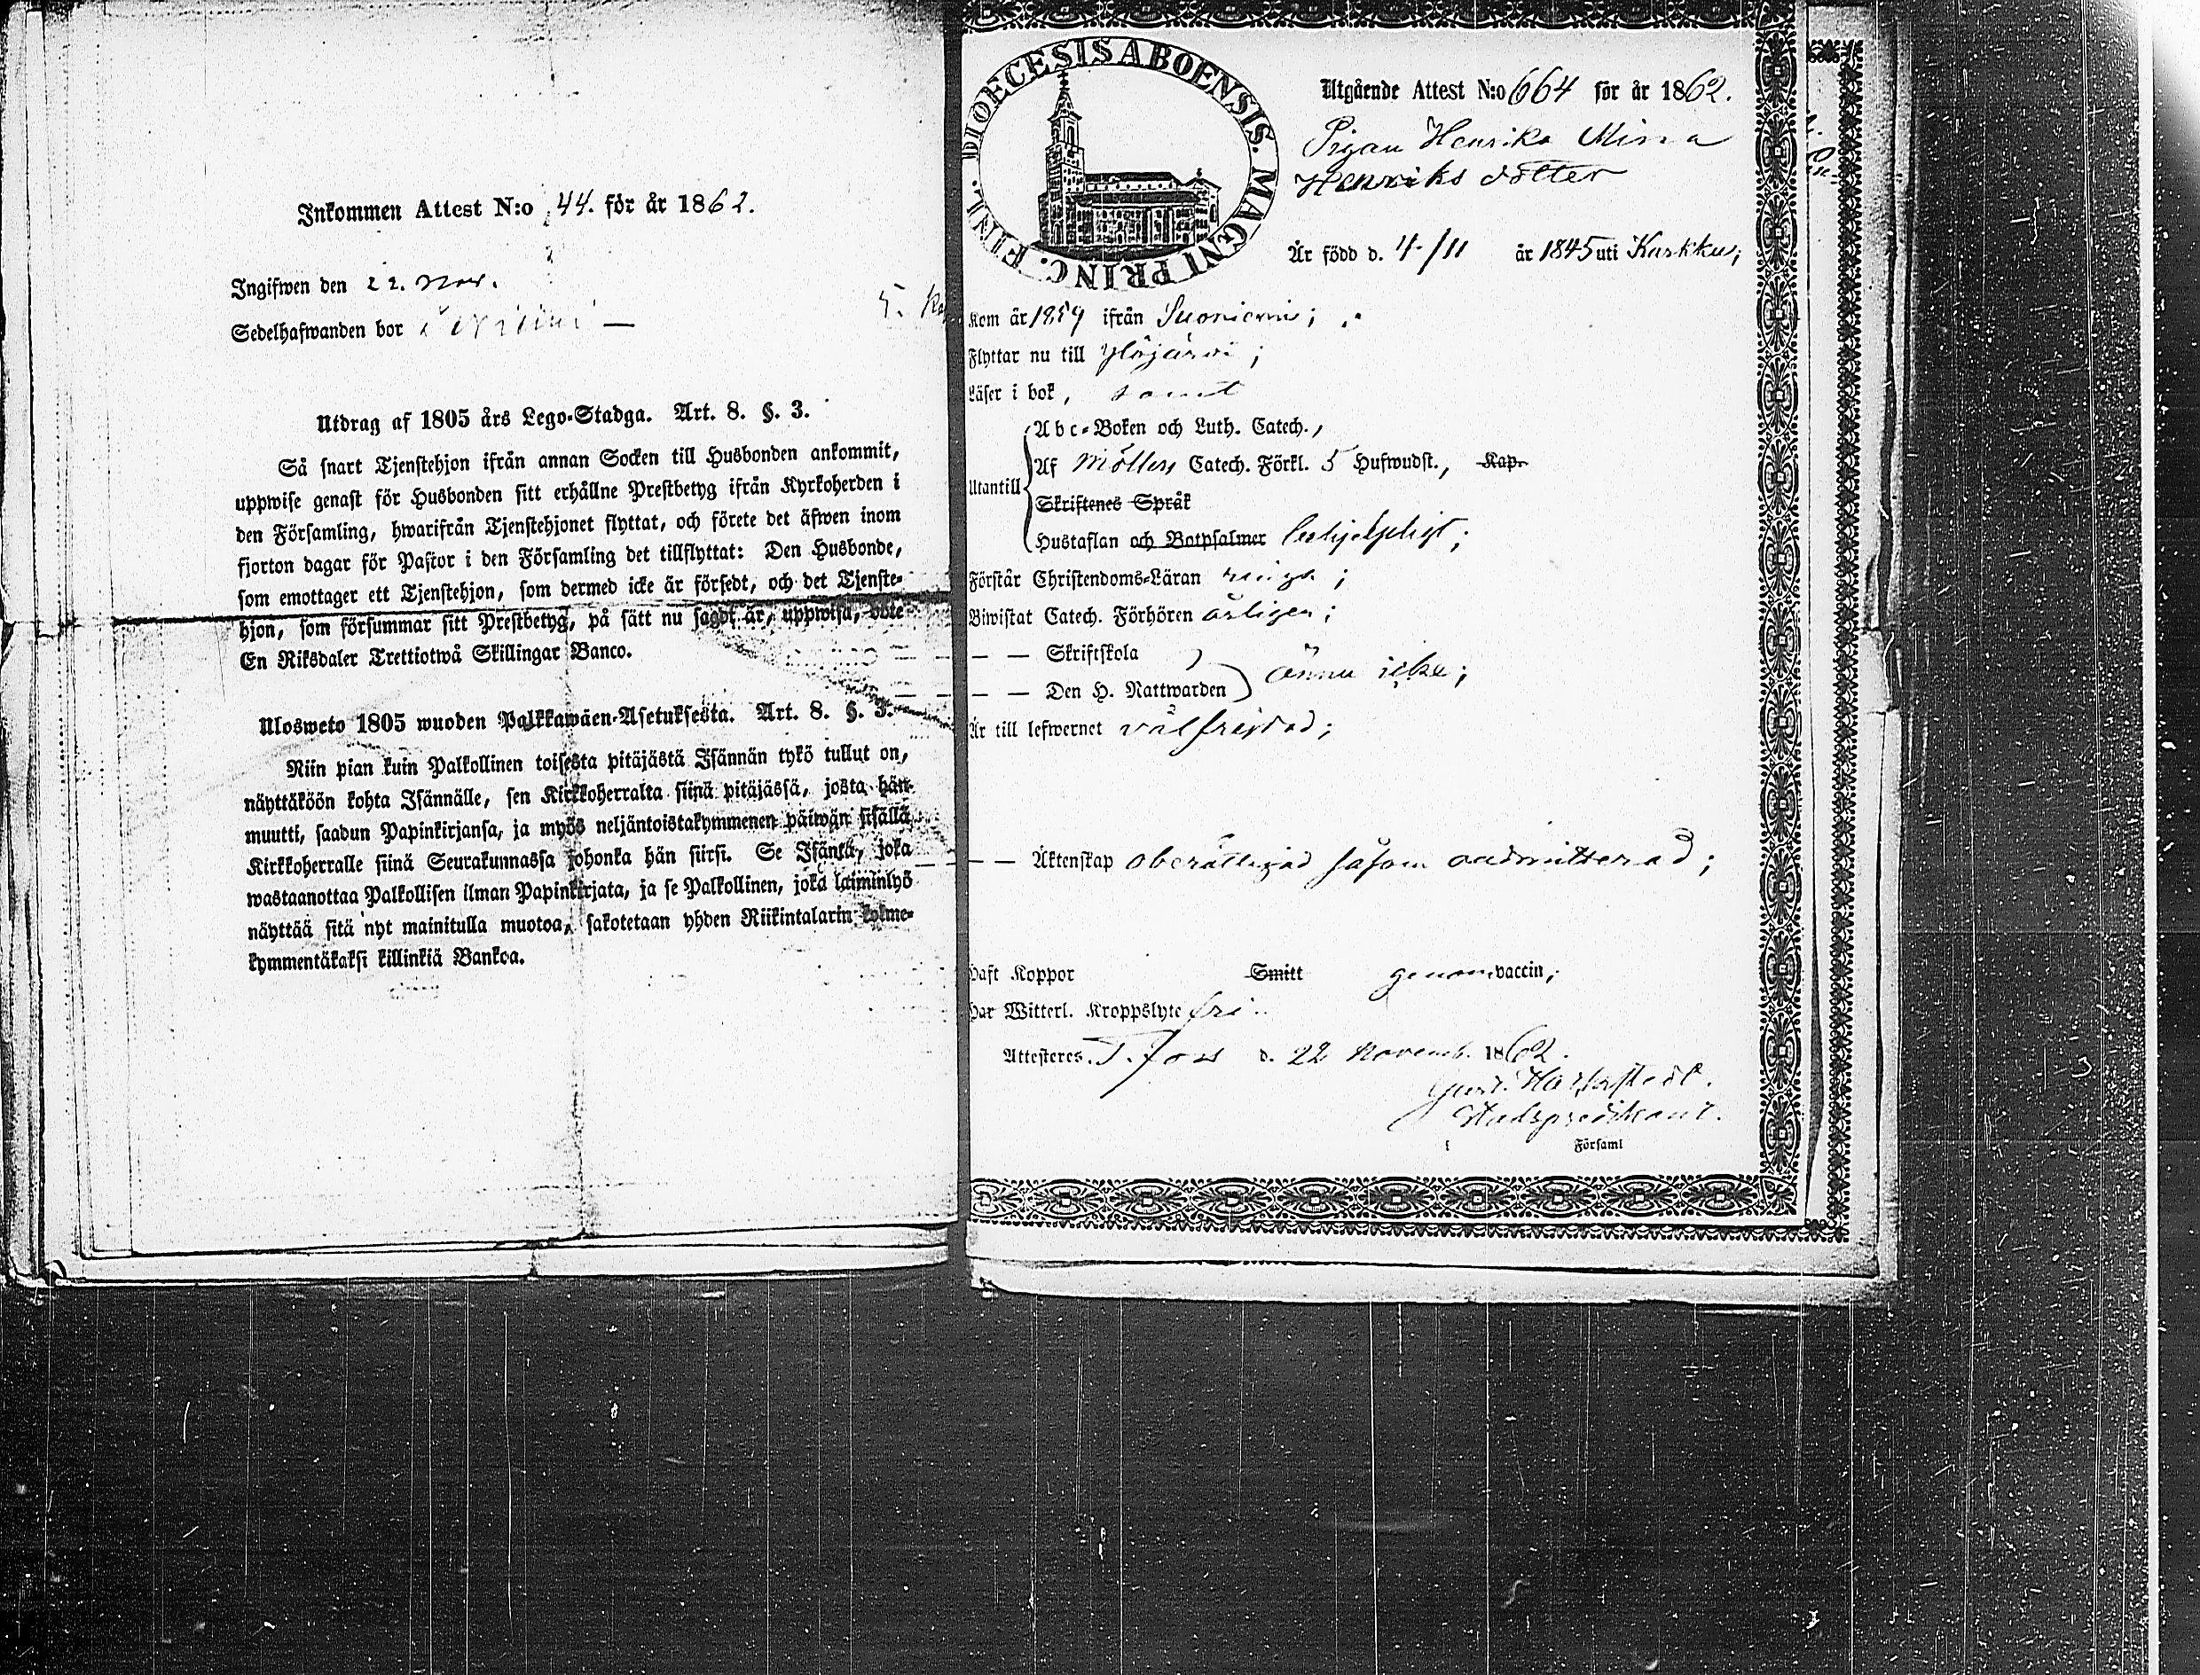 Inkommen Attest N:o 44. för år 1862.
Ingifwen den 22. Nov.
Sedelhafwanden bor
Utdrag af 1805 års Lego-Stadga. Art. 8. §. 3.
Så snart Tjenstehjon ifrån annan Socken till Husbonden ankommit,
uppwise genast för Husbonden sitt erhållne Prestbetyg ifrån Kyrkoherden i
den Församling, hwarifrån Tjenstehjonet flyttat, och förete det äfwen inom
fjorton dagar för Pastor i den Församling det tillflyttat: Den Husbonde,
som emottager ett Tjenstehjon, som dermed icke är försedt, och det Tjenste-
hjon, som försummar sitt Prestbetyg, på sätt nu sagdt är, uppwisa, böte
En Riksdaler Trettiotwå Skillingar Banco.
Ulosweto 1805 wuoden Palkkawäen-Asetuksesta. Art. 8. §. 3.
Niin pian kuin Palkollinen toisesta pitäjästä Isännän tykö tullut on,
näyttäköön kohta Isännälle, sen Kirkkoherralta siinä pitäjässä, josta hän
muutti, saadun Papinkirjansa, ja myös neljäntoistakymmenen päiwän sisällä
Kirkkoherralle siinä Seurakunnassa johonka hän siirsi. Se Isäntä, joka
wastaanottaa Palkollisen ilman Papinkirjata, ja se Palkollinen, joka laiminlyö
näyttää sitä nyt mainitulla muotoa, sakotetaan yhden Riikintalarin kolme-
kymmentäkaksi killinkiä Bankoa.
DIOECESIS ABOENSIS. MAGNI PRINC. FINL.
Utgående Attest N:o 664 för år 1862.
Pigan Henrika Mina
Henriks dotter
Är född d. 4/11 år 1845 uti Karkku;
Kom år 1859 ifrån Suoniemi;
Flyttar nu till Ylöjärvi;
Läser i bok, samt
Utantill
Abc-Boken och Luth. Catech.,
Af Möllers Catech. Förkl. 5 Hufwudst., Kap.
Skriftenes Språk
Hustaflan och Botpsalmer behjelpligt;
Förstår Christendoms-Läran ringa;
Biwistat Catech. Förhören årligen;
— — Skriftskola
— — Den H. Nattwarden ännu icke;
Är till lefwernet välfrejdad;
— — Äktenskap oberättigad såsom oadmitterad;
Haft Koppor Smitt genom vaccin;
Har Witterl. Kroppslyte fri
Attesteres. T. fors d. 22 Novemb. 1862.
Stadspredikant.
i Församl